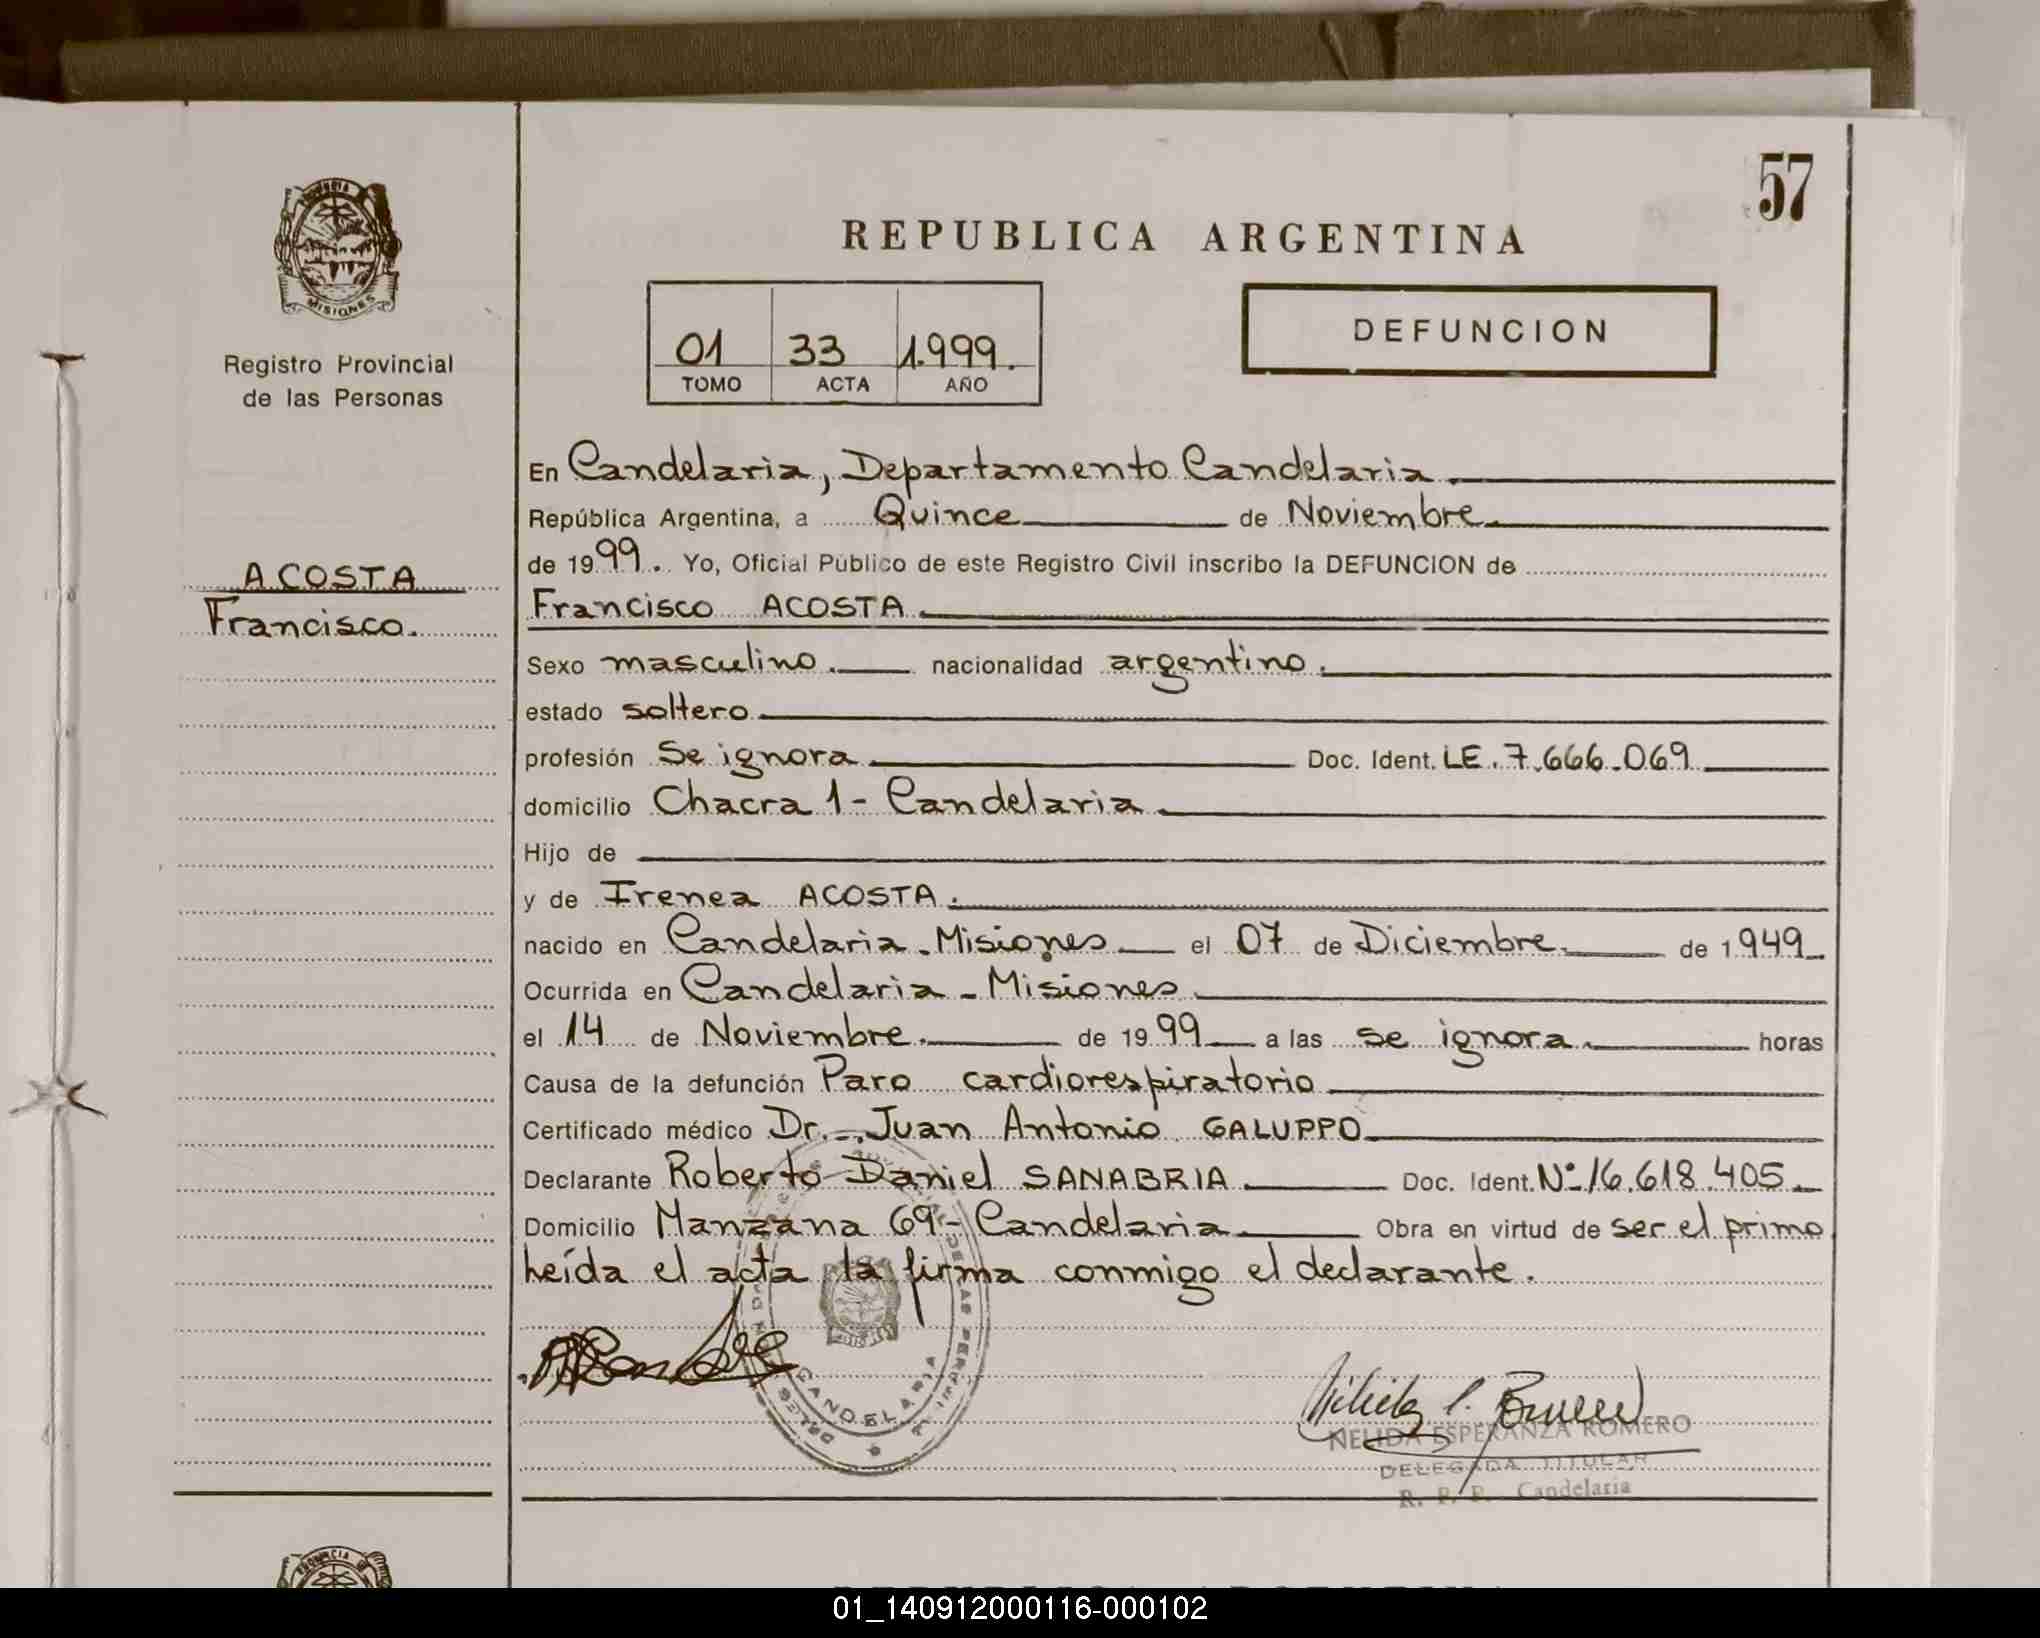 57
PROVINCIA
MISIONES
Registro Provincial
de las Personas
REPUBLICA ARGENTINA
01 33 1.999.
TOMO ACTA AÑO
DEFUNCION
ACOSTA
Francisco.
En Candelaria, Departamento Candelaria.
República Argentina, a Quince de Noviembre.
de 1999. Yo, Oficial Público de este Registro Civil inscribo la DEFUNCION de
Francisco ACOSTA
Sexo masculino. nacionalidad argentino.
estado soltero
profesión Se ignora Doc. Ident. LE. 7.666.069
domicilio Chacra 1 - Candelaria
Hijo de
y de Irenea ACOSTA.
nacido en Candelaria - Misiones el 07 de Diciembre. de 1949
Ocurrida en Candelaria - Misiones
el 14 de Noviembre. de 1999 a las se ignora. horas
Causa de la defunción Paro cardiorespiratorio
Certificado médico Dr. Juan Antonio GALUPPO
Declarante Roberto Daniel SANABRIA Doc. Ident. Nº 16.618.405
Domicilio Manzana 69 - Candelaria Obra en virtud de ser el primo
Leída el acta la firma conmigo el declarante.
CANDELARIA
NELIDA ESPERANZA ROMERO
DELEGADA TITULAR
R. P. P. Candelaria
PROVINCIA
01_140912000116-000102